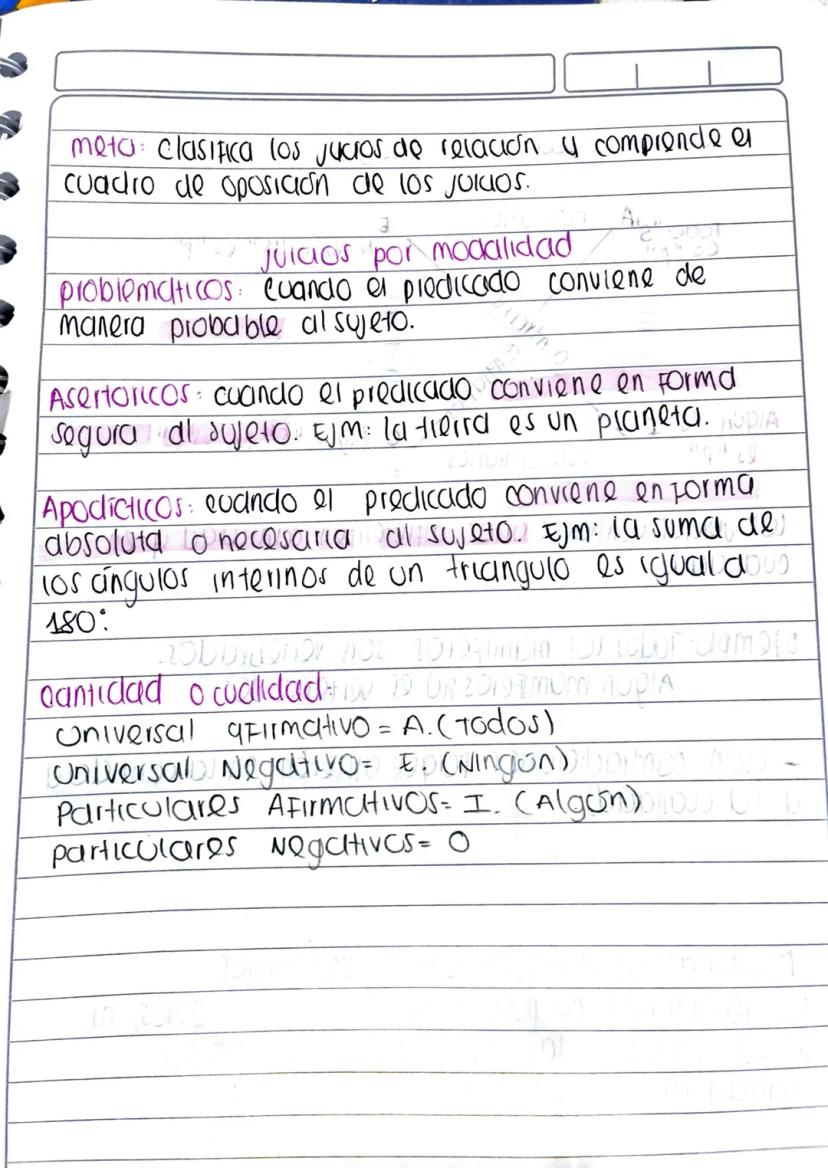 meta: Clasifica los juicios de relación y comprende el
cuadro de oposición de los juicios.
juicios por modalidad
problemáticos: cuando el predicado conviene de
manera probable al sujeto.
Asertóricos: cuando el predicado conviene en forma
segura al sujeto. Ejm: la tierra es un planeta.
Apodícticos: cuando el predicado conviene en forma
absoluta o necesaria al sujeto. Ejm: la suma de
los ángulos internos de un triangulo es igual a
180°
cantidad o cualidad:
universal afirmativo = A. (Todos)
universal Negativo= E. (Ningún)
Particulares Afirmativos= I. (Algún)
particulares Negativos= O